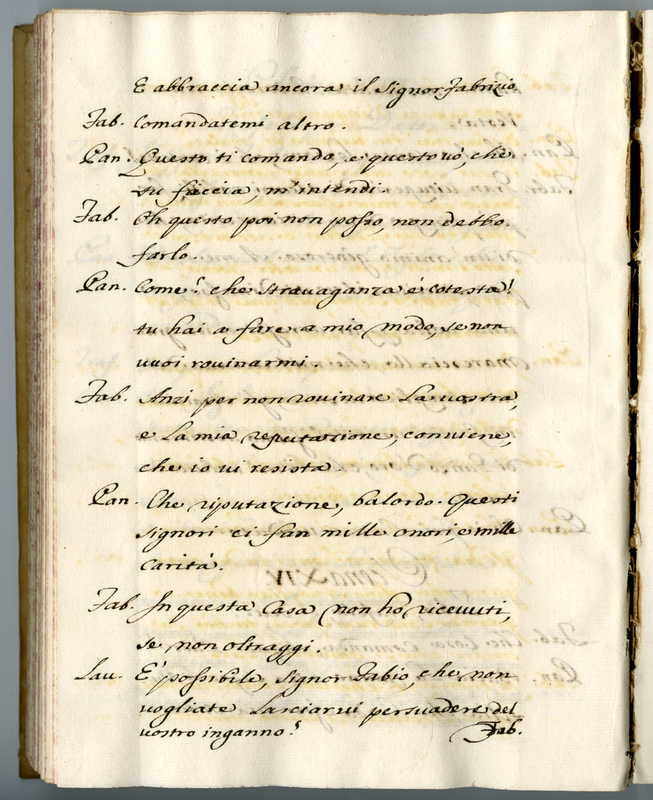 E abbraccia ancora il Signor Fabrizio.
Fab. Comandatemi altro.
Pan. Questo ti comando, e questo vò, che
tu faccia, m'intendi.
Fab. Oh questo poi non posso, non debbo
farlo.
Pan. Come? che stravaganza è cotesta!
tu hai a fare a mio modo, se non
vuoi rovinarmi.
Fab. Anzi per non rovinare la vostra,
e la mia reputazione, conviene,
che io vi resista
Pan. Che riputazione, balordo. Questi
Signori ci fan mille onori, e mille
carità.
Fab. In questa Casa non hò ricevuti,
se non oltraggi.
Lau. E' possibile, Signor Fabio, che non
vogliate lasciarvi persuadere del
vostro inganno?
Fab.